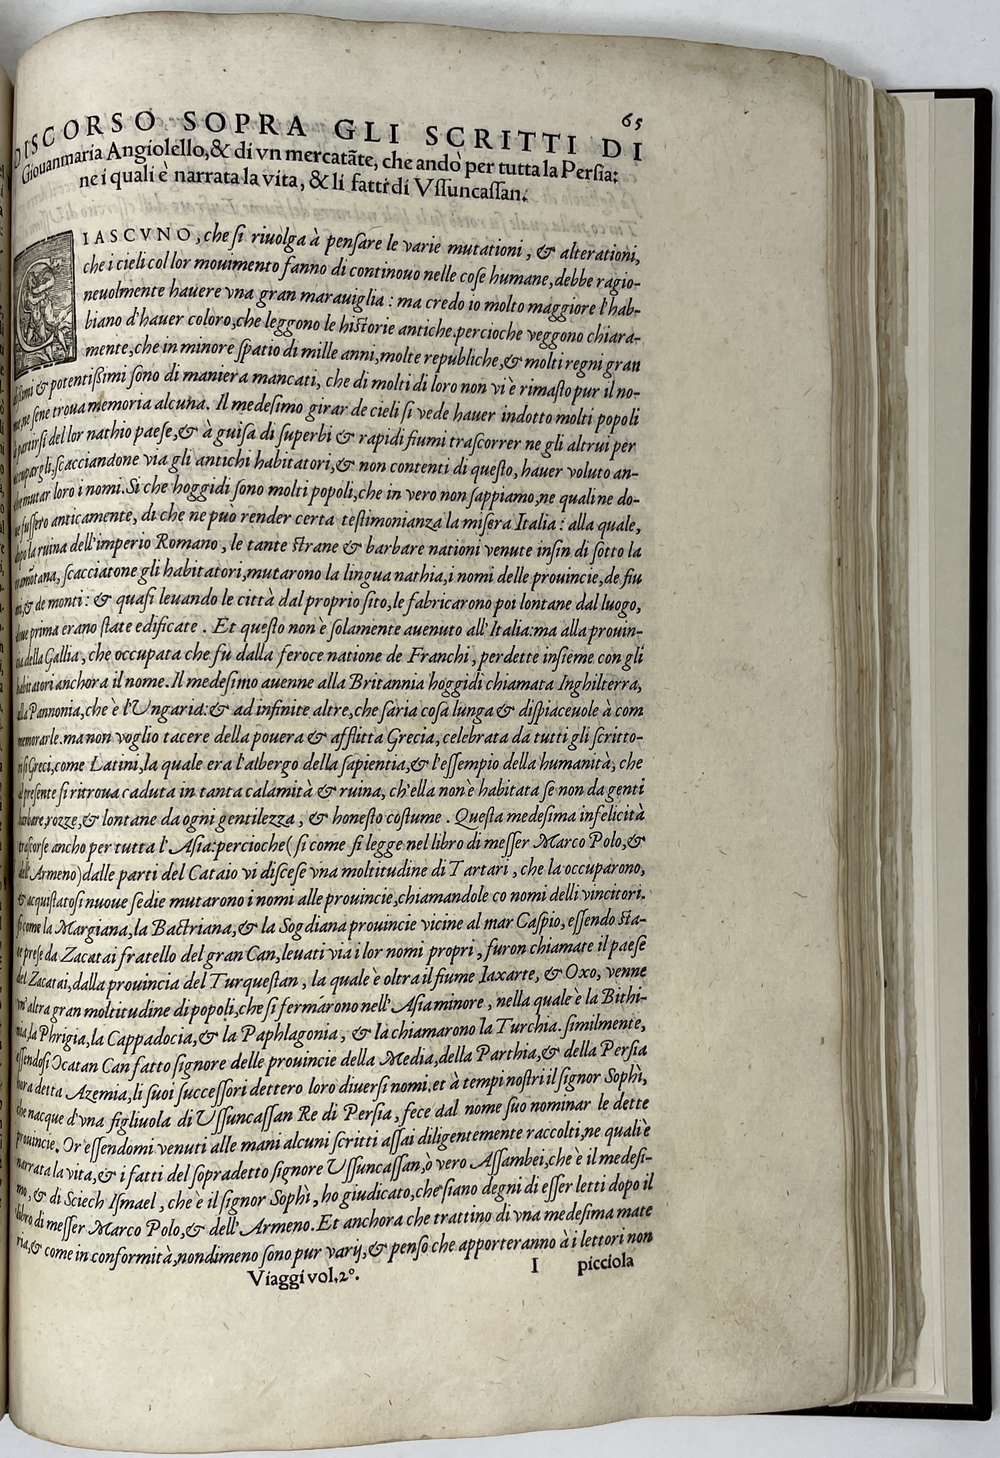 65
DISCORSO SOPRA GLI SCRITTI DI
Giouanmaria Angiolello,& di vn mercatãte, che andò per tutta la Persia:
ne i quali è narrata la vita, & li fatti di Vssuncassan.
CIASCVNO, che si riuolga à pensare le varie mutationi, & alterationi,
che i cieli col lor mouimento fanno di continouo nelle cose humane, debbe ragio-
neuolmente hauere vna gran marauiglia: ma credo io molto maggiore l'hab-
biano d'hauer coloro,che leggono le historie antiche.percioche veggono chiara-
mente,che in minore spatio di mille anni,molte republiche,& molti regni gran
dissimi & potentissimi sono di maniera mancati, che di molti di loro non vi è rimasto pur il no-
me,ne sene troua memoria alcuna. Il medesimo girar de cieli si vede hauer indotto molti popoli
à partirsi del lor nathio paese,& à guisa di superbi & rapidi fiumi trascorrer ne gli altrui per
occupargli,scacciandone via gli antichi habitatori,& non contenti di questo, hauer voluto an-
che mutar loro i nomi.Si che hoggidi sono molti popoli,che in vero non sappiamo,ne quali ne do-
ue fussero anticamente, di che ne può render certa testimonianza la misera Italia: alla quale,
dopo la ruina dell'imperio Romano, le tante strane & barbare nationi venute insin di sotto la
tramõtana, scacciatone gli habitatori,mutarono la lingua nathia,i nomi delle prouincie,de fiu
mi,& de monti: & quasi leuando le città dal proprio sito,le fabricarono poi lontane dal luogo,
doue prima erano state edificate. Et questo non è solamente auenuto all'Italia:ma alla prouin-
cia della Gallia, che occupata che fu dalla feroce natione de Franchi, perdette insieme con gli
habitatori anchora il nome. Il medesimo auenne alla Britannia hoggidi chiamata Inghilterra,
alla Pannonia,che è l'Ungaria:& ad infinite altre,che saria cosa lunga & dispiaceuole à com
memorarle.ma non voglio tacere della pouera & afflitta Grecia, celebrata da tutti gli scritto-
ri si Greci,come Latini,la quale era l'albergo della sapientia,& l'essempio della humanità, che
al presente si ritroua caduta in tanta calamità & ruina, ch'ella non è habitata se non da genti
barbare,rozze,& lontane da ogni gentilezza, & honesto costume. Questa medesima infelicità
trascorse ancho per tutta l'Asia:percioche(si come si legge nel libro di messer Marco Polo,&
dell'Armeno)dalle parti del Cataio vi discese vna moltitudine di Tartari, che la occuparono,
& acquistatosi nuoue sedie mutarono i nomi alle prouincie,chiamandole co nomi delli vincitori.
si come la Margiana,la Bactriana,& la Sogdiana prouincie vicine al mar Caspio, essendo sta-
te prese da Zacatai fratello del gran Can,leuati via i lor nomi propri, furon chiamate il paese
del Zacatai,dalla prouincia del Turquestan, la quale è oltra il fiume Iaxarte, & Oxo, venne
vn'altra gran moltitudine di popoli,che si fermarono nell'Asia minore, nella quale è la Bithi-
nia,la Phrigia,la Cappadocia,& la Paphlagonia, & la chiamarono la Turchia. similmente,
essendosi Ocatan Can fatto signore delle prouincie della Media,della Parthia,& della Persia
hora detta Azemia,li suoi successori dettero loro diuersi nomi.et à tempi nostri il signor Sophì,
che nacque d'vna figliuola di Ussuncassan Re di Persia, fece dal nome suo nominar le dette
prouincie. Or'essendomi venuti alle mani alcuni scritti assai diligentemente raccolti,ne quali è
narrata la vita,& i fatti del sopradetto signore Ussuncassan,ò vero Assambei,che è il medesi-
mo, & di Sciech Ismael, che è il signor Sophì, ho giudicato,che siano degni di esser letti dopo il
libro di messer Marco Polo,& dell'Armeno. Et anchora che trattino di vna medesima mate
ria,& come in conformità,nondimeno sono pur varij,& penso che apporteranno à i lettori non
Viaggi vol.2°. I picciola